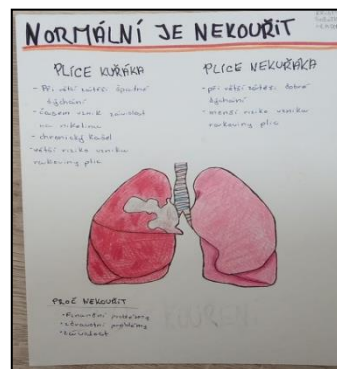 NORMÁLNÍ JE NEKOUŘIT
PLÍCE KUŘÁKA
- Při větší zátěži špatné
dýchání
- časem vznik závislost
na nikotinu
- chronický kašel
- větší riziko vzniku
rakoviny plic
PLÍCE NEKUŘÁKA
- při větší zátěži dobré
dýchání
- menší riziko vzniku
rakoviny plic
PROČ NEKOUŘIT
- finanční problémy
- zdravotní problémy
- závislost